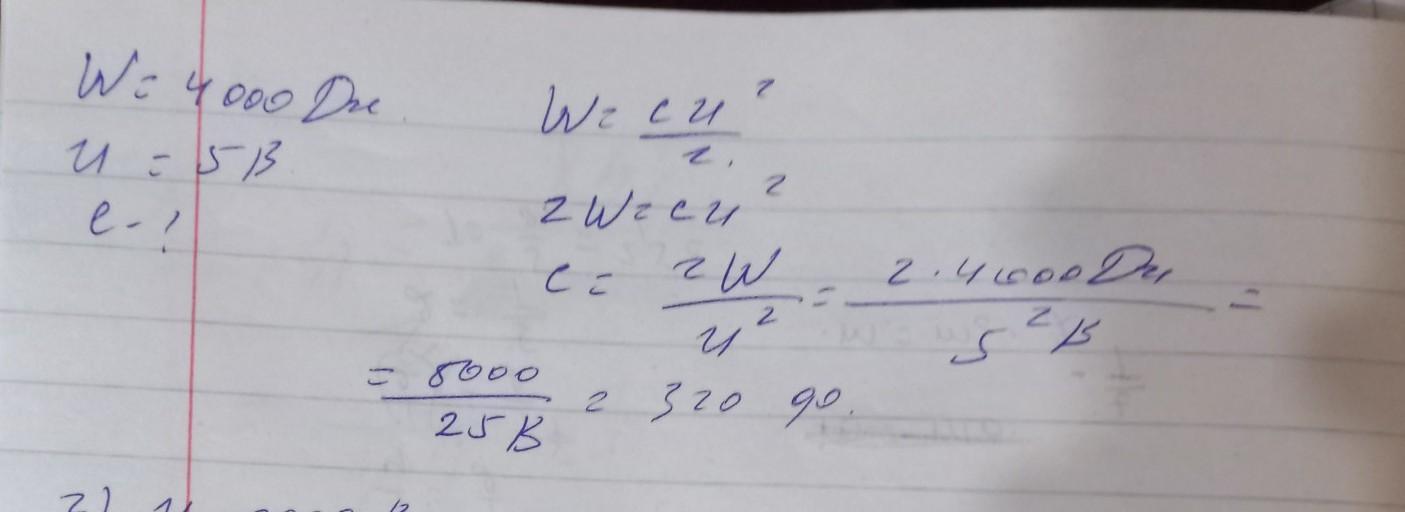 W = 4000 Дж
U = 5В
C - ?
W = CU²/2.
2W = CU²
C = 2W/U² = 2·4000Дж/5²В =
= 8000/25В = 320 φ.
2)